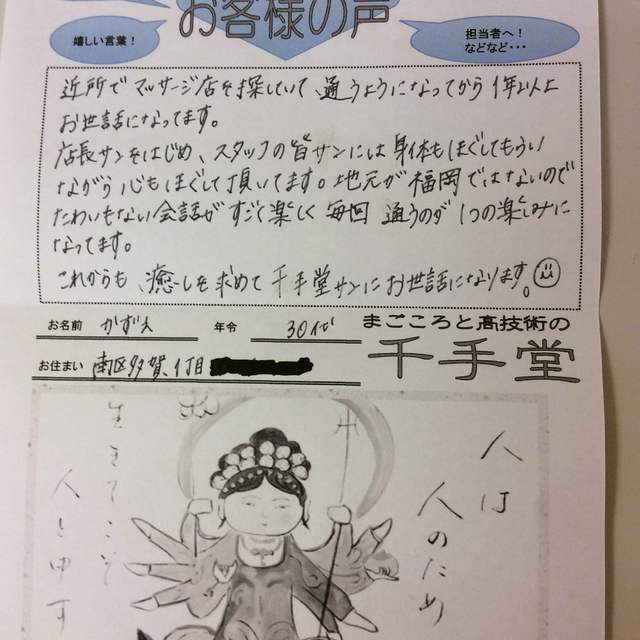 お客様の声
嬉しい言葉！
担当者へ！
などなど・・・
近所でマッサージ店を探していて、通うようになってから1年以上
お世話になってます。
店長サンをはじめ、スタッフの皆サンには身体もほぐしてもらい
ながら心もほぐして頂いてます。地元が福岡ではないので
たわいもない会話がすごく楽しく毎回通うのが1つの楽しみに
なってます。
これからも、癒しを求めて千手堂サンにお世話になります。
お名前 かず人 年令 30代
まごころと高技術の
千手堂
お住まい 南区多賀1丁目
人は
人のため
生きてこそ
人と申す